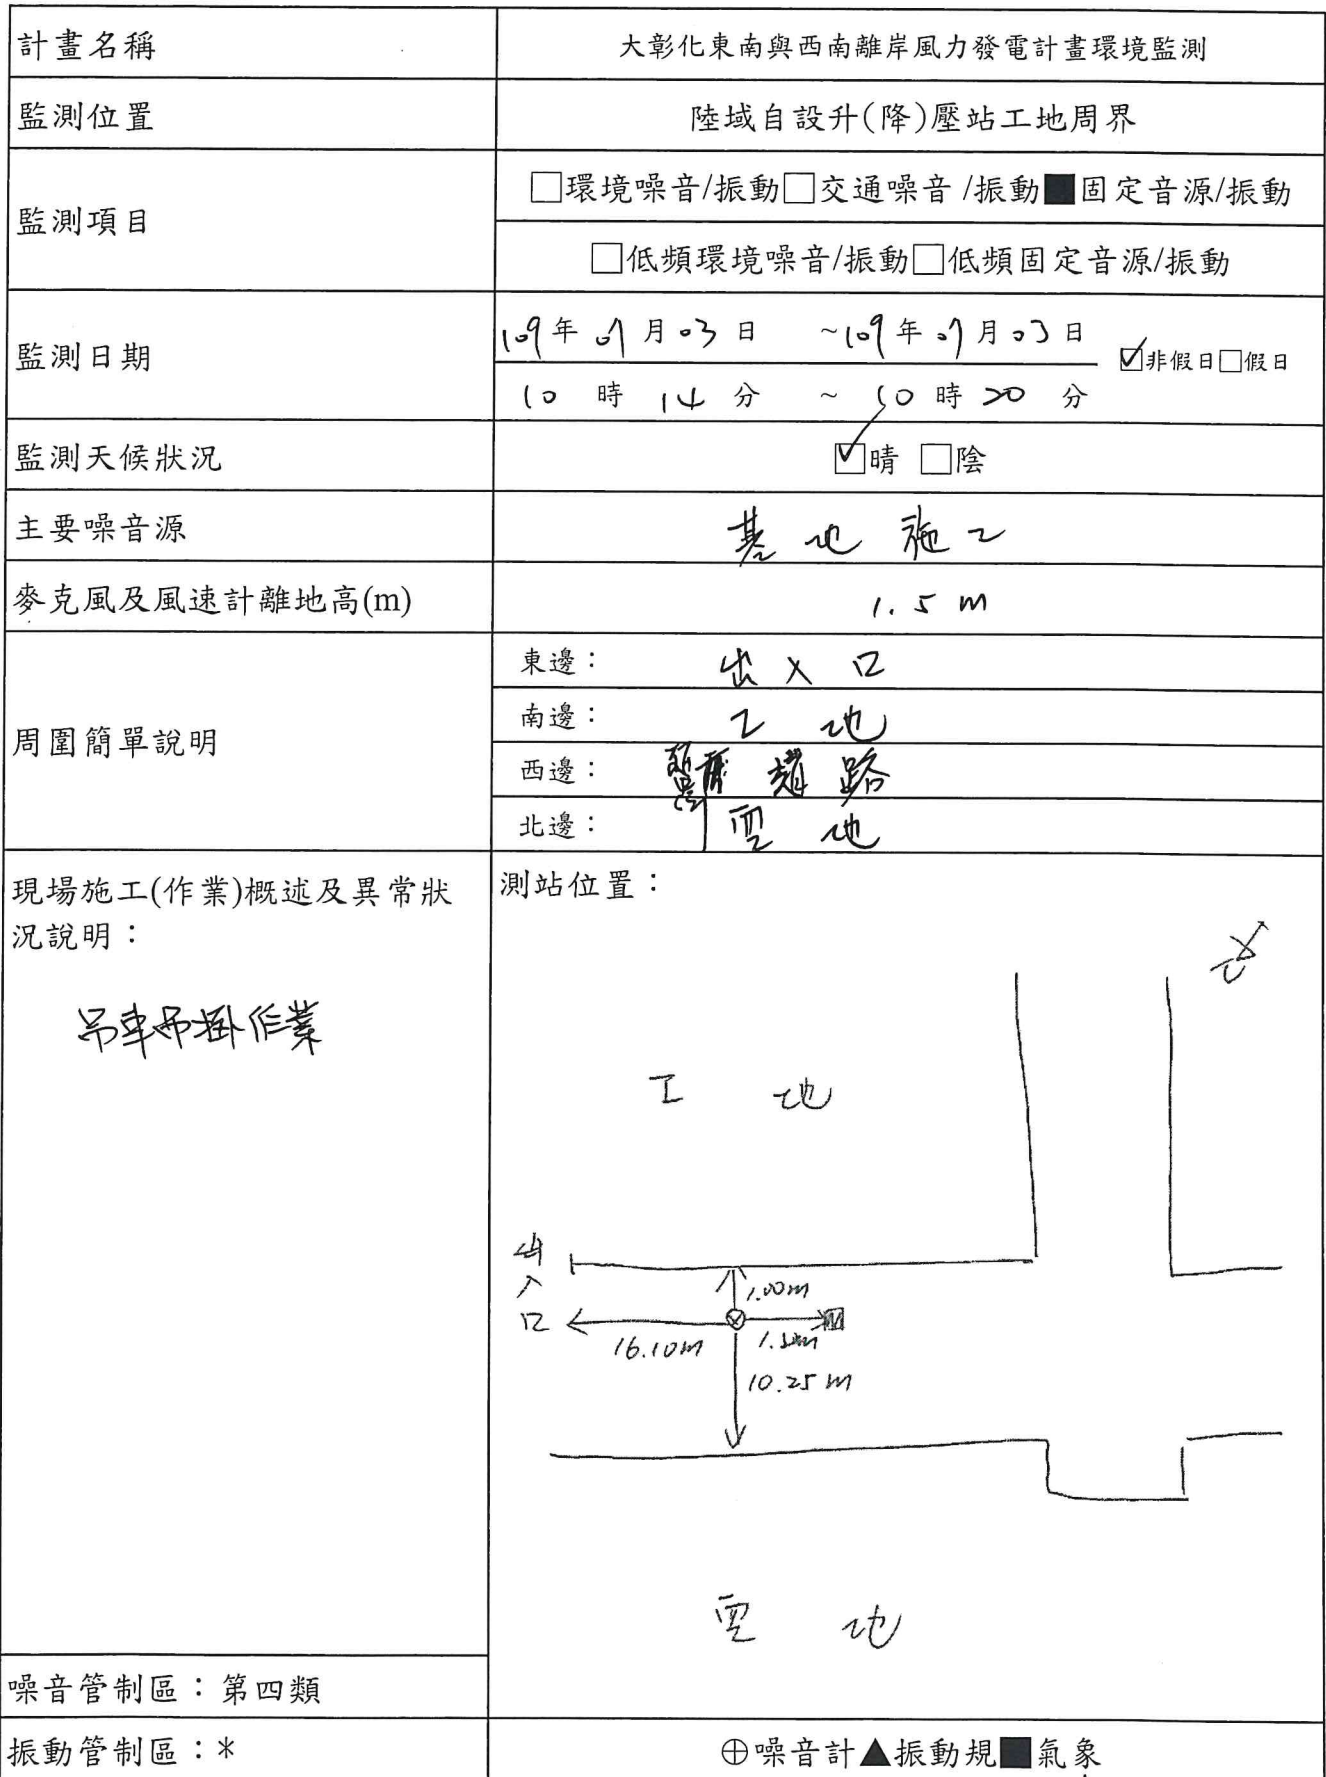 計畫名稱 大彰化東南與西南離岸風力發電計畫環境監測
監測位置 陸域自設升(降)壓站工地周界
監測項目 □環境噪音/振動□交通噪音/振動■固定音源/振動
□低頻環境噪音/振動□低頻固定音源/振動
監測日期 109年07月03日 ~109年07月03日 ☑非假日□假日
10時14分 ~ 10時20分
監測天候狀況 ☑晴 □陰
主要噪音源 基地施工
麥克風及風速計離地高(m) 1.5 m
周圍簡單說明
東邊: 出入口
南邊: 工地
西邊: 道路
北邊: 空地
現場施工(作業)概述及異常狀
況說明:
吊車吊掛作業
測站位置:
北
工地
出入口
1.00m
16.10m
10.25m
空地
噪音管制區:第四類
振動管制區:*
⊕噪音計▲振動規■氣象